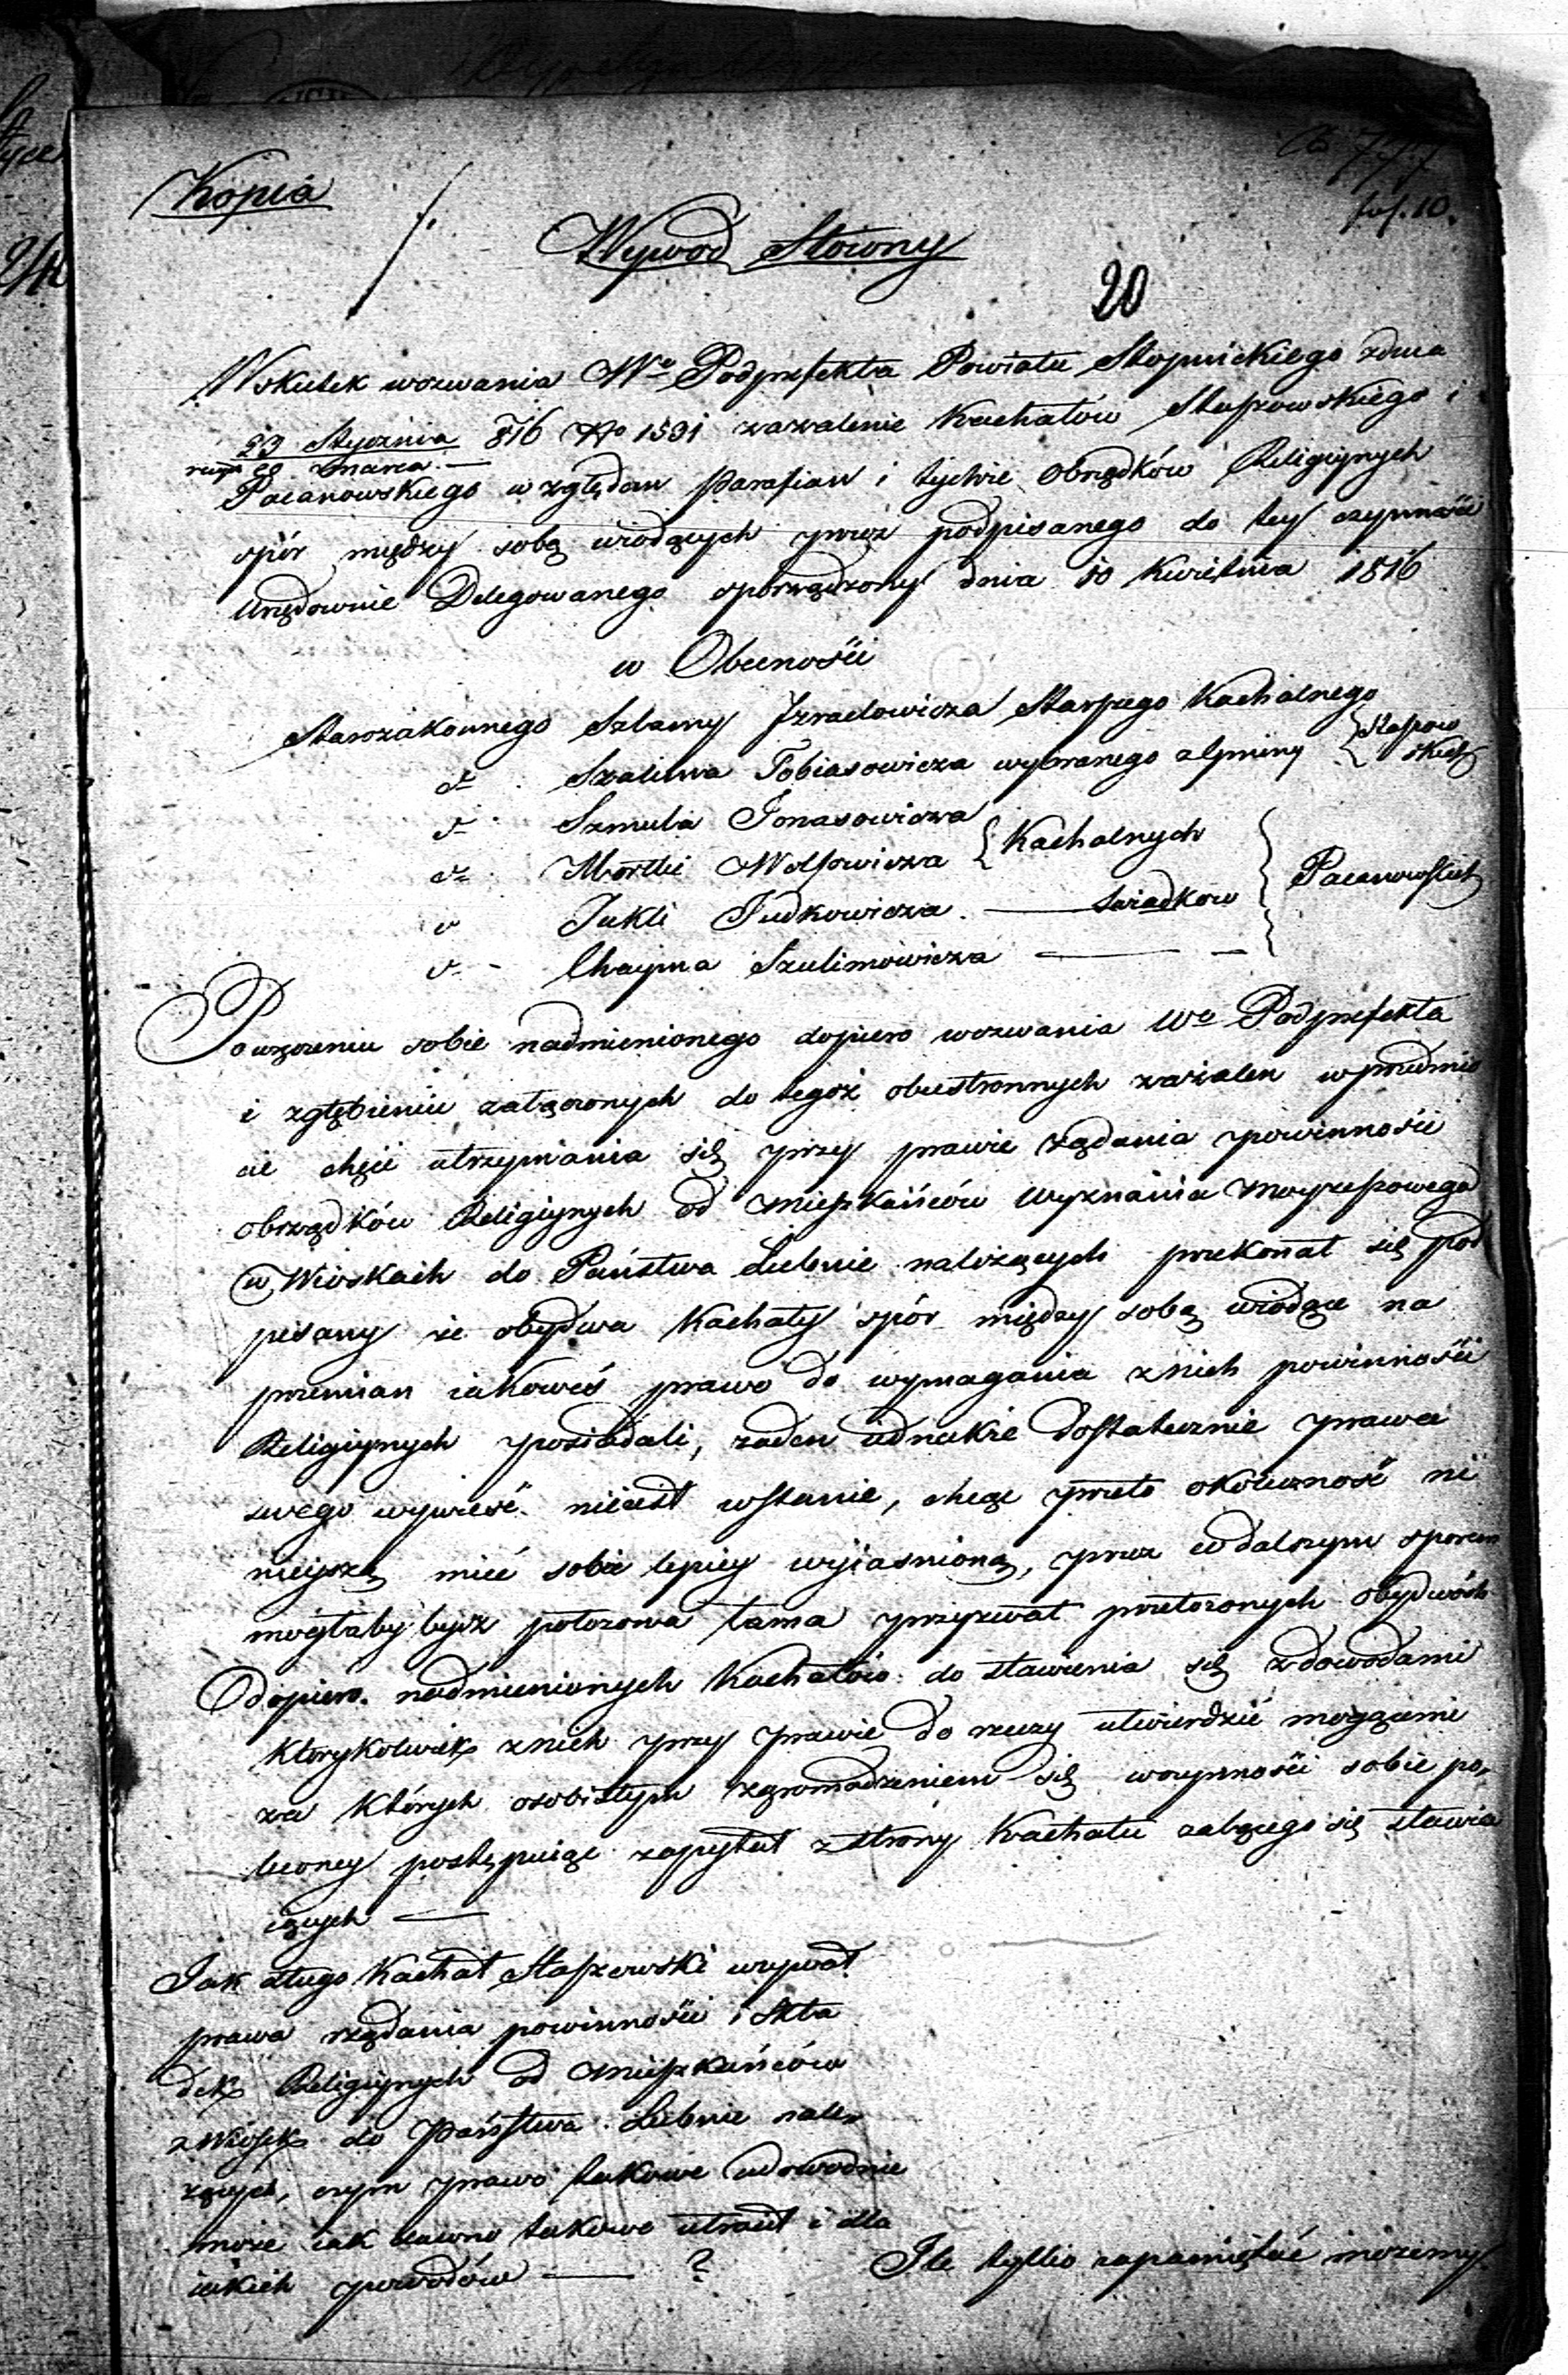 Kopia
fol. 10.
Wywod Słowny
20
W skutek wezwania Wo Podprefekta Powiatu Stopnickiego z dnia
23 Stycznia 816 No 1591 zażalenie Kachałów Staszowskiego i
20 marca. —
Pacanowskiego względem Parafian i tychże Obrządków Religiynych
spór między sobą wiodących przez podpisanego do tey czynności
Urzędownie Delegowanego sporządzony dnia 10 Kwietnia 1816
w Obecności
Starozakonnego Szlamy Izraelowicza Starszego Kachalnego
dto Szalima Tobiasowicza wybranego z Gminy } Staszow
skich
dto Szmula Jonasowicza
dto Mortki Wolfowicza } Kachalnych
dto Jukli Judkowicza. — Swiadkow } Pacanowskich
dto Chayma Szulimowicza — —
Po wzięciu sobie nadmienionego dopiero wezwania Wo Podprefekta
i zgłębieniu załączonych do tegoż obustronnych zażaleń w przedmio
cie chęci utrzymania się przy prawie rządania powinności
obrządków Religiynych od mieszkańców wyznania moyżeszowego
w Wioskach do Państwa Lubnie należących przekonał się pod
pisany że obydwa Kachały spór między sobą wiodące na
przemian iakoweś prawo do wymagania z nich powinności
Religiynych posiadali, żaden iednakże dostatecznie prawa
swego wywieść nieiest wstanie, chcąc przeto okoliczność ni
nieyszą mieć sobie lepiey wyiasnioną, przez co dalszym sporem
mogłaby bydź położona tama przyzwał przełożonych obydwóch
dopiero nadmienionych Kachałów do stawienia się z dowodami
Którykolwiek z nich przy prawie do rzeczy utwierdzić mogącemi
za których osobistym zgromadzeniem się w czynności sobie po„
leconey postępuiąc zapytał z strony Kachału żalącego się stawia
iących —
Jak długo Kachał Staszowski używał
prawa rządania powinności i Skła
dek Religiynych od mieszkańców
z Wiosek do Państwa Lubnie nale„
żących, czym prawo takowe udowodnić
może iak dawno takowe utracił i dla
iakich powodów — ?
Ile tylko zapamiętać możemy